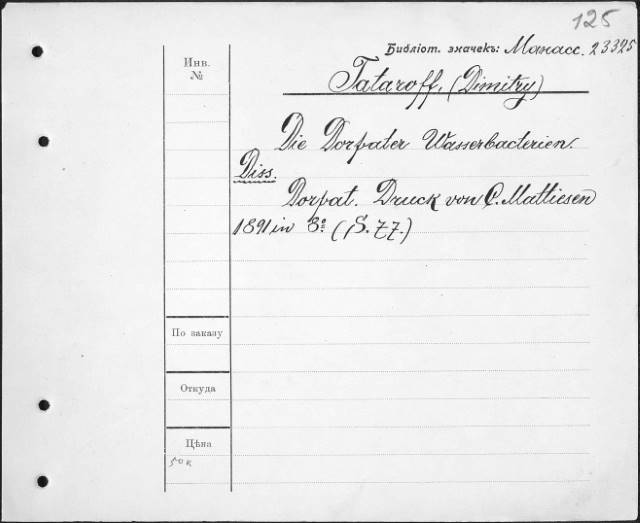 125
Библіот. значекъ: Манасс. 23395
Инв.
№
Tataroff, (Dimitry)
Die Dorpater Wasserbacterien.
Diss.
Dorpat. Druck von C. Mattiesen
1891 in 8º (S. 77.)
По заказу
Откуда
Цѣна
50 к